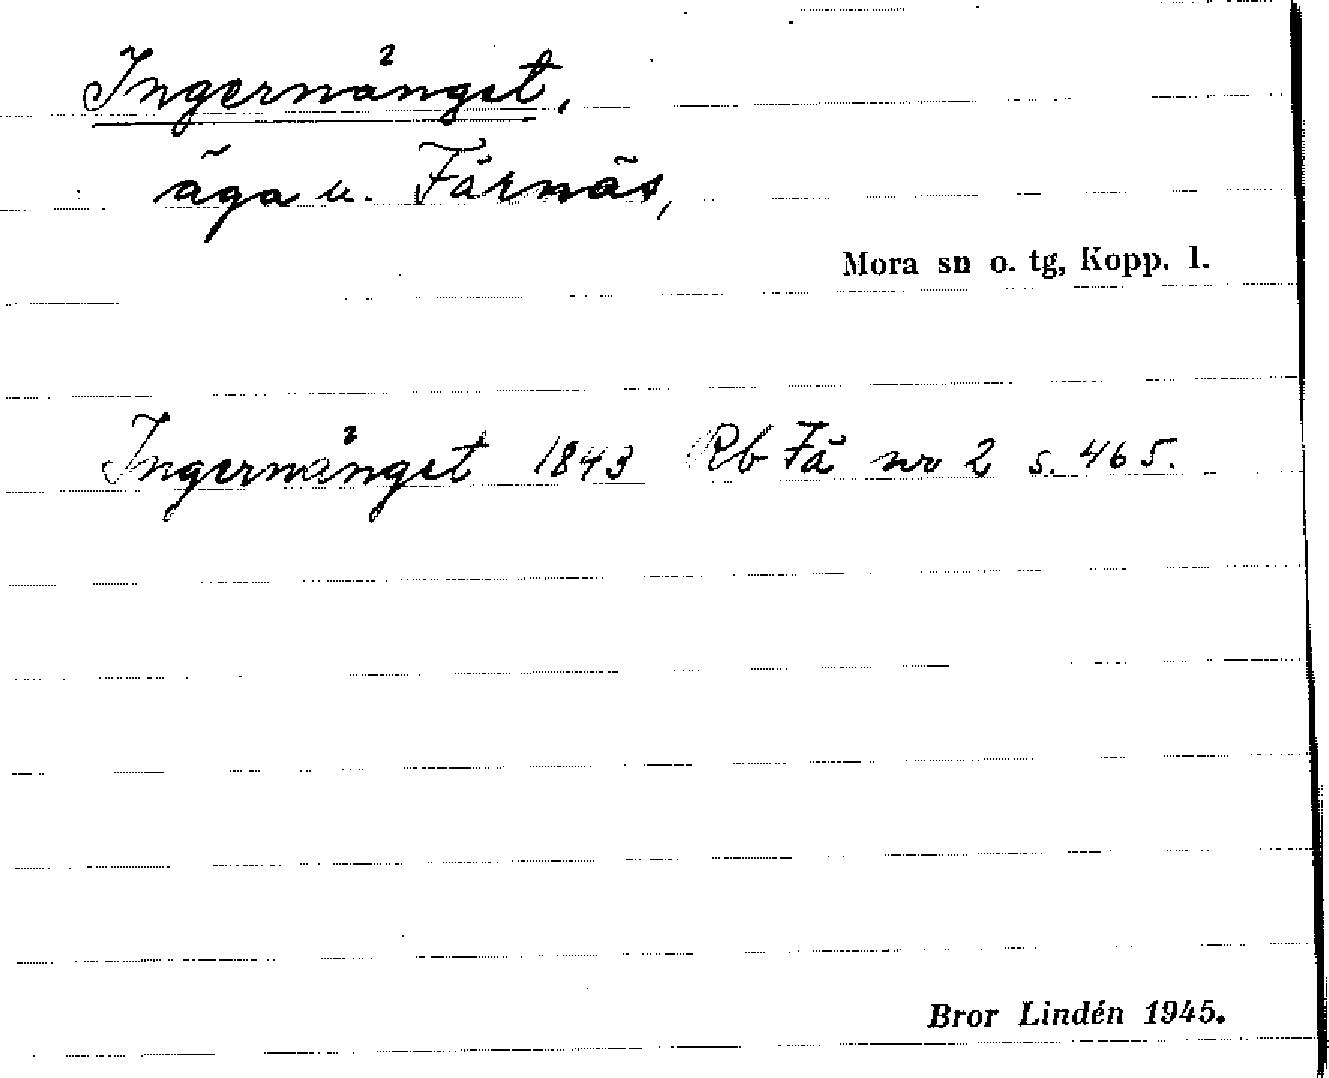 Ingernänget,
äga u. Färnäs,
Mora sn o. tg, Kopp. l.
Ingernänget 1843 Rb Fä nr 2 s. 465.
Bror Lindén 1945.